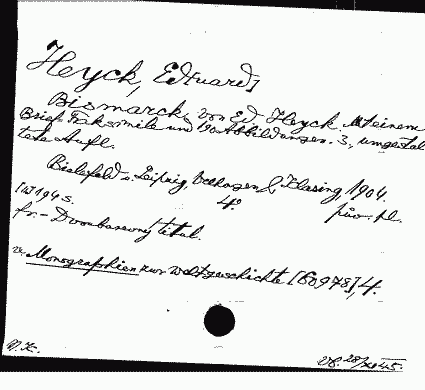 Heyck, Ed[uard]
Bismarck. Von Ed. Heyck. Mit einem
Brief Faksimile und 190 Abbildungen. 3., umgestal
tete Aufl.
Bielefeld u. Leipzig, Velhagen & Klasing, 1904.
4°
194 S.
fr.-
v. Monographien zur Weltgeschichte [60978], 4.